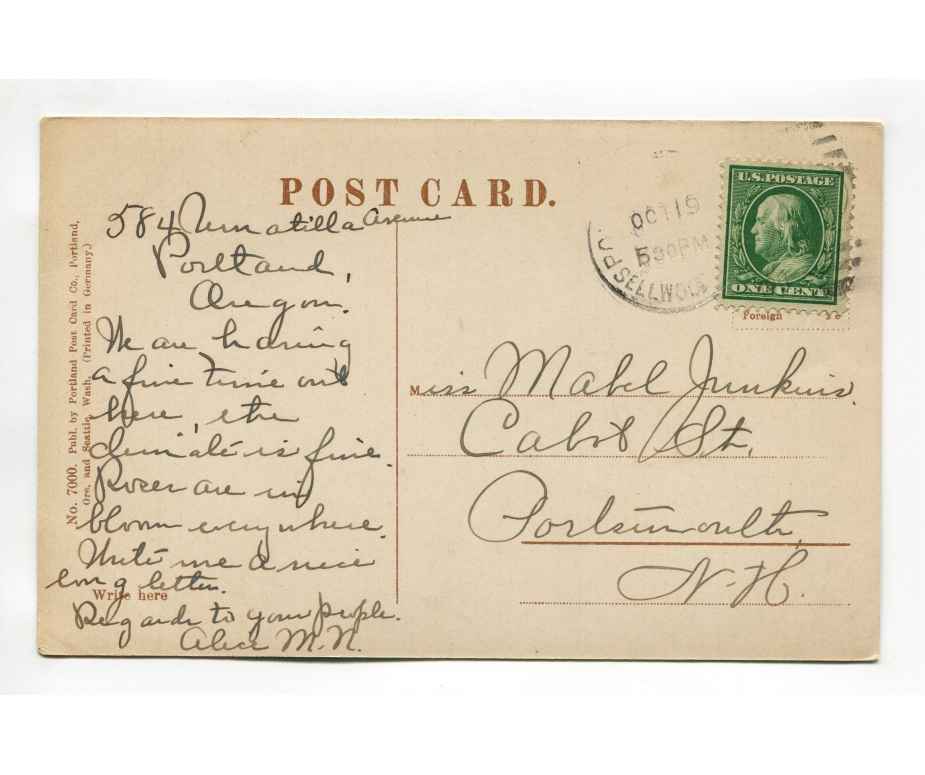 POST CARD.
584 Umatilla Avenue
Portland,
Oregon.
We are having
a fine time out
here, the
climate is fine.
Roses are in
bloom everywhere.
Write me a nice
long letter.
Write here
Regards to your people.
Alice M. N.
No. 7000. Publ. by Portland Post Card Co., Portland,
Ore. and Seattle, Wash. (Printed in Germany.)
OCT 19
5 30 PM
SELLWOO
U.S. POSTAGE
ONE CENT
Foreign 2c
Miss Mabel Junkins.
Cabot St.
Portsmouth,
N-H.